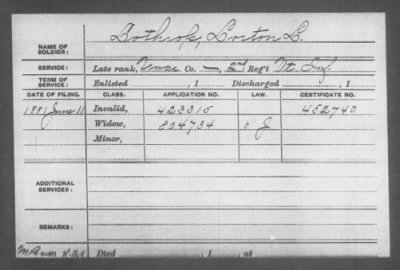 NAME OF SOLDIER: Lothrop, Loston L.
SERVICE: Late rank, Co. —, 2nd Reg't Vt. Inf.
TERM OF SERVICE: Enlisted , 1 Discharged , 1
DATE OF FILING. CLASS. APPLICATION NO. LAW. CERTIFICATE NO.
1881 June 11 Invalid, 423315 452740
Widow, 804734
Minor,
ADDITIONAL SERVICES:
REMARKS:
Died , 1 , at